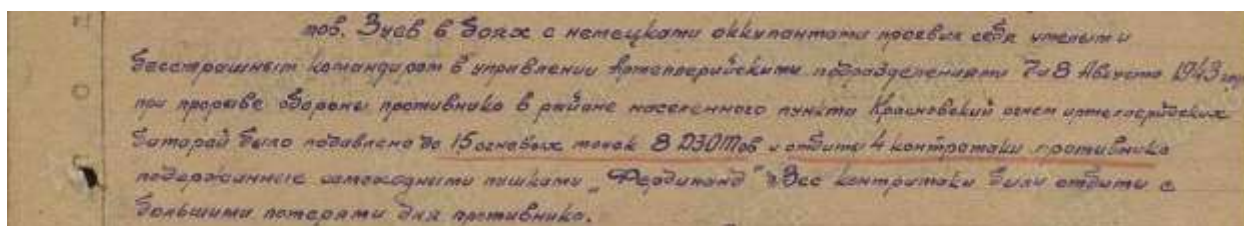 тов. Зуев в боях с немецками оккупантами проевил себя умелыми
бесстрашным командиром в управлении Артиллерийскими подразделениями 7и8 Августа 1943 году
при прорыве обороны противника в районе населенного пункта Красновский огнем артиллерийских
батарей было подавлено до 15 огнавых точек 8 ДЗОТов и отбиты 4 контратаки противника
подержанные самоходными пушками „Фердинанд" Все контратаки были отбиты с
большими потерями для противника.